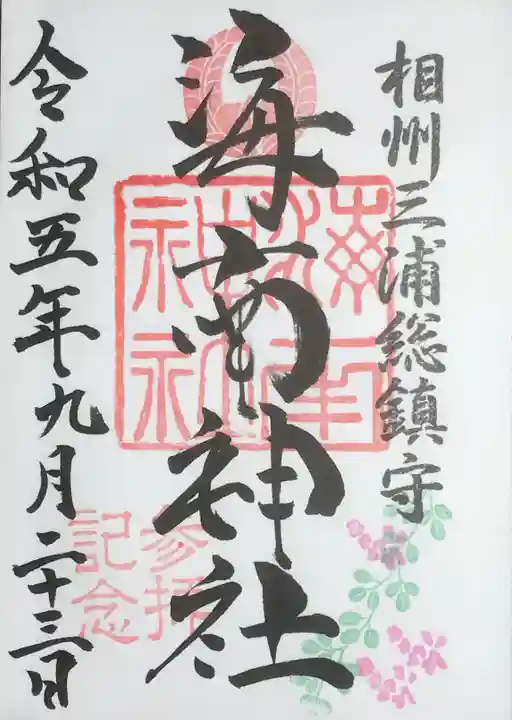 相州三浦総鎮守
海南神社
令和五年九月二十三日
参拝
記念